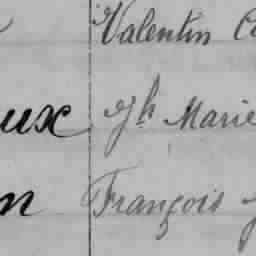 Valentin
ux Jh Marie
n François